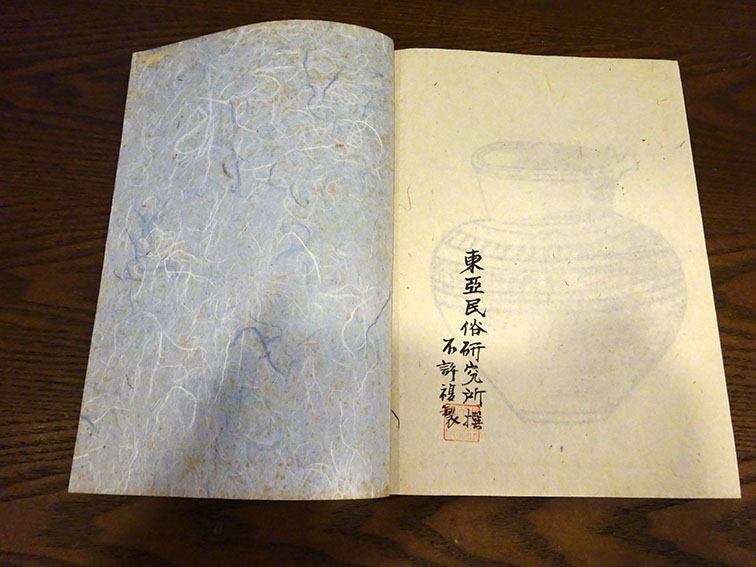 東亞民俗硏究所 撰
不許複製